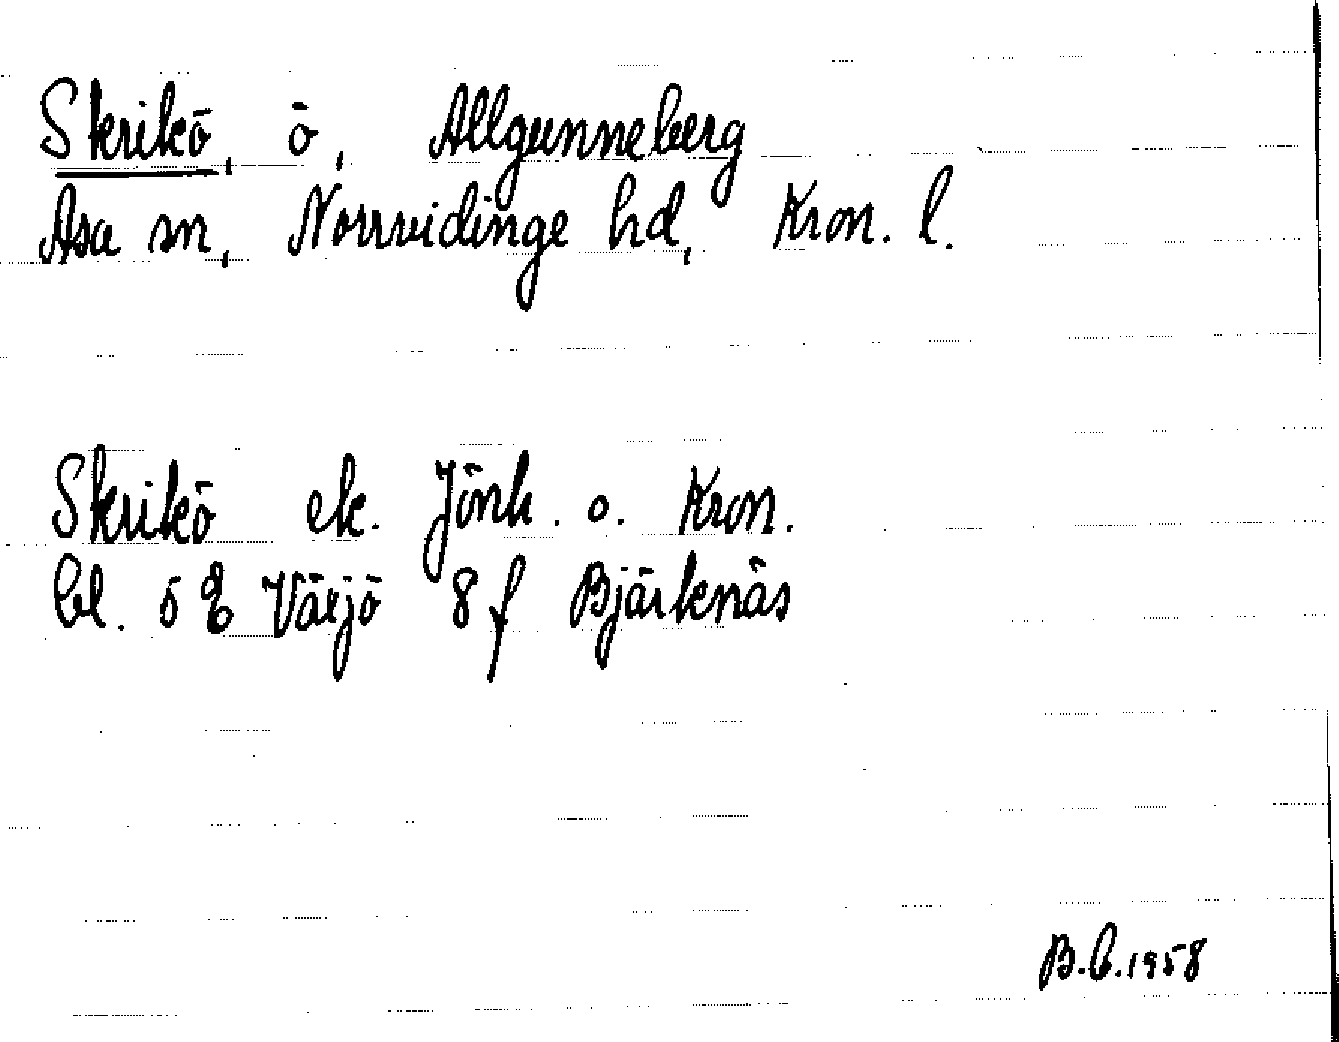 Skrikö, ö, Allgunneberg
Asa sn, Norrvidinge hd, Kron. l.
Skrikö ek. Jönk. o. Kron.
bl. 5 Växjö 8 f Bjärkenäs
B.C. 1958